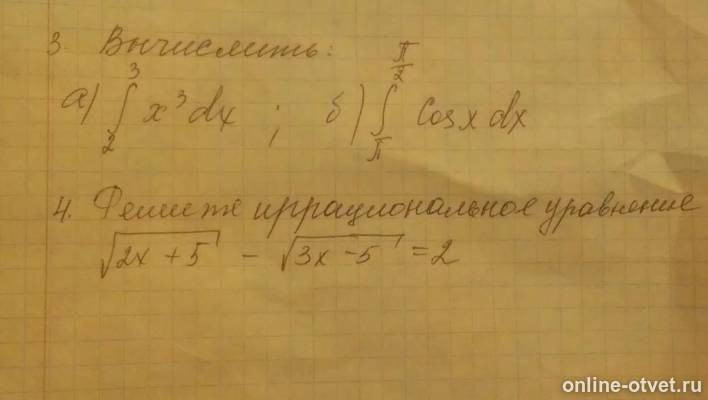 3. Вычислить:
а) ∫₂³ x³ dx ; б) ∫_π^(π/2) Cos x dx
4. Решите иррациональное уравнение
√(2x + 5) - √(3x - 5) = 2
online-otvet.ru